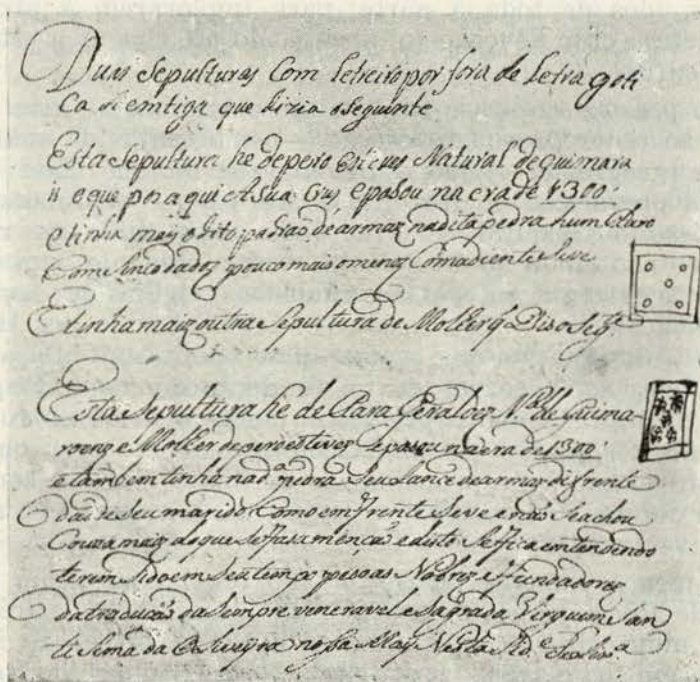 Duas Sepulturas Com Letreiro por fora de Letra goti
Ca e emtiga que dizia o seguinte
Esta Sepultura he depero Natural deguimara
is o que pos aqui Asua Crus epasou na era de 1300
e tinha mais o dito padras dearmas nadita pedra hum Claro
Com sinco dados pouco mais o menos Comadiente Seve
E tinha maiz outra Sepultura de Molher q Diz o Seg.e
Esta Sepultura he de Clara Geraldez N.al de Guima-
raens e Molher de pero estives epasou na era de 1300
e tambem tinha na d.a pedra Seu Lance dearmas difrente
das de seu marido Como em frente Seve e nas Seachou
Couza maiz do que se fasa mensaõ e disto Se fica entendendo
terem Sido em Seu tempo pesoas Nobrez e Fundadorez
da traduçaõ da Sempre veneravel e Sagrada Virguem San
ti Sima da Oliveyra nossa May Nesta